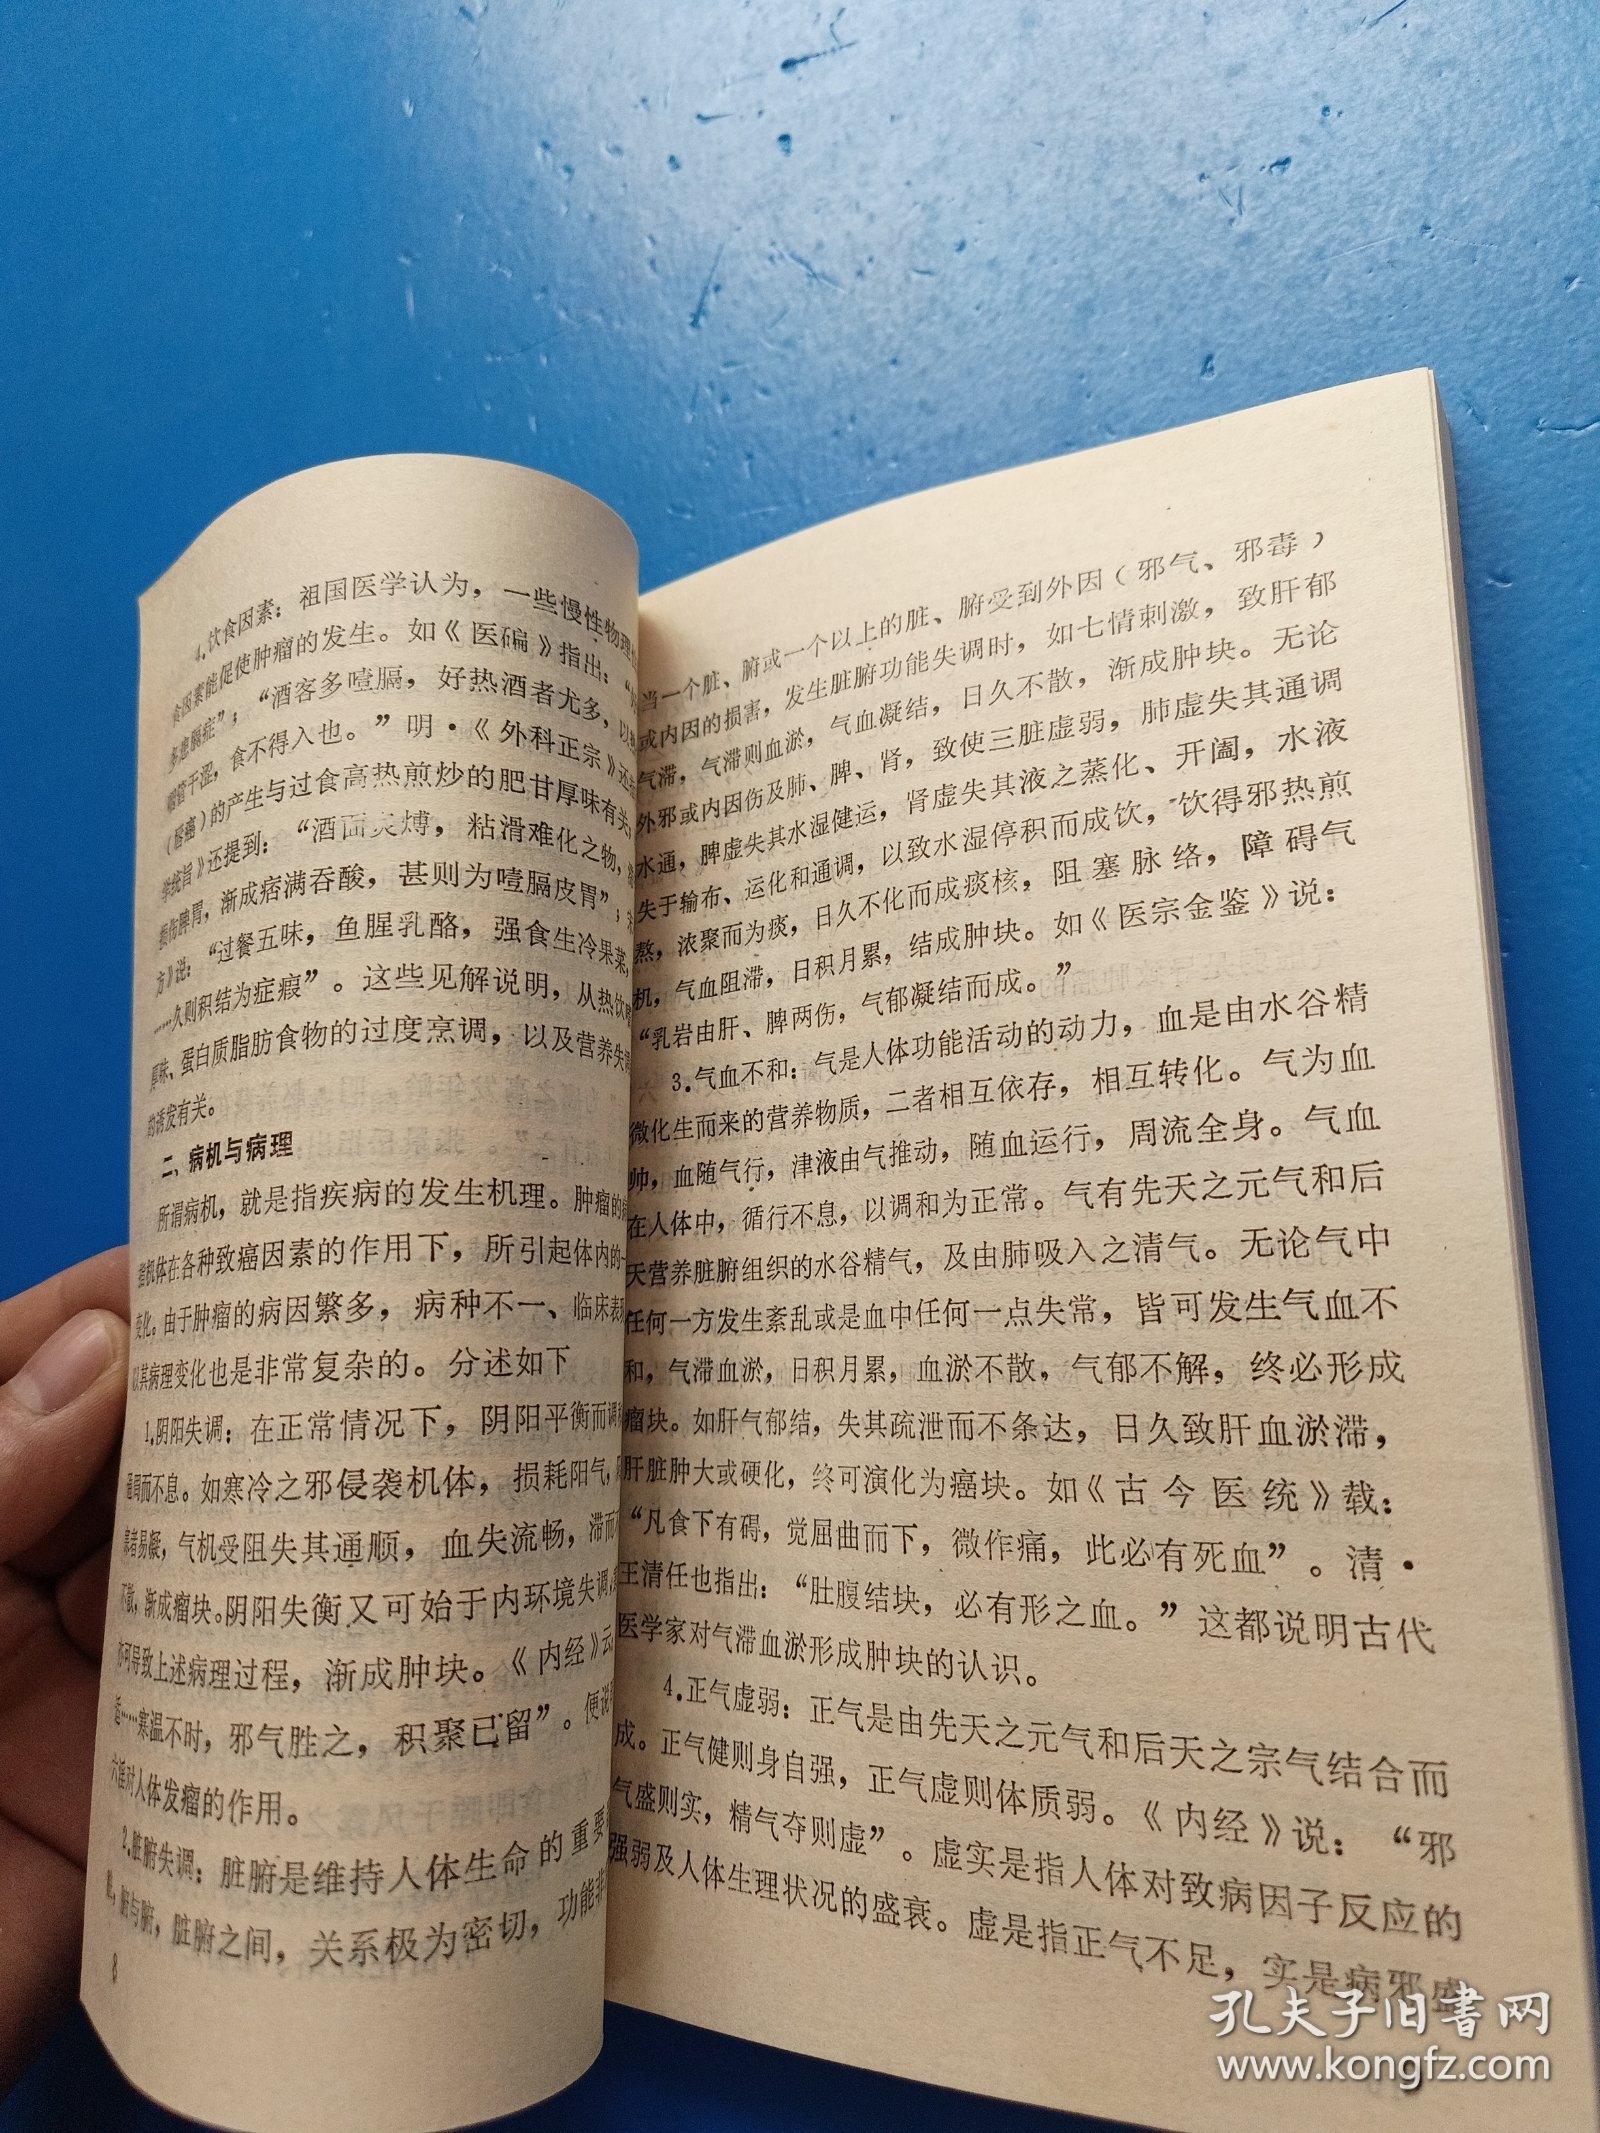 4.饮食因素：祖国医学认为，一些慢性物理
食因素能促使肿瘤的发生。如《医碥》指出：“
多患膈症”；“酒客多噎膈，好热酒者尤多，以
咽管干涩，食不得入也。”明·《外科正宗》还
（唇癌）的产生与过食高热煎炒的肥甘厚味有关，
学统旨》还提到：“酒面炙煿，粘滑难化之物，
损伤脾胃，渐成痞满吞酸，甚则为噎膈皮胃”；
方》说：“过餐五味，鱼腥乳酪，强食生冷果菜，
……久则积结为症瘕”。这些见解说明，从热饮
厚味、蛋白质脂肪食物的过度烹调，以及营养失调
的诱发有关。
二、病机与病理
所谓病机，就是指疾病的发生机理。肿瘤的病
指机体在各种致癌因素的作用下，所引起体内的一
变化。由于肿瘤的病因繁多，病种不一、临床表现
以其病理变化也是非常复杂的。分述如下
1.阴阳失调：在正常情况下，阴阳平衡而调
通周而不息。如寒冷之邪侵袭机体，损耗阳气，
寒者易凝，气机受阻失其通顺，血失流畅，滞而
不散，渐成瘤块。阴阳失衡又可始于内环境失调，
亦可导致上述病理过程，渐成肿块。《内经》云
……寒温不时，邪气胜之，积聚已留”。便说
六淫对人体发瘤的作用。
2.脏腑失调：脏腑是维持人体生命的重要
腑与腑，脏腑之间，关系极为密切，功能非
8
当一个脏、腑或一个以上的脏、腑受到外因（邪气、邪毒）
或内因的损害，发生脏腑功能失调时，如七情刺激，致肝郁
气滞，气滞则血淤，气血凝结，日久不散，渐成肿块。无论
外邪或内因伤及肺、脾、肾，致使三脏虚弱，肺虚失其通调
水通，脾虚失其水湿健运，肾虚失其液之蒸化、开阖，水液
失于输布、运化和通调，以致水湿停积而成饮，饮得邪热煎
熬，浓聚而为痰，日久不化而成痰核，阻塞脉络，障碍气
机，气血阻滞，日积月累，结成肿块。如《医宗金鉴》说：
“乳岩由肝、脾两伤，气郁凝结而成。”
3.气血不和：气是人体功能活动的动力，血是由水谷精
微化生而来的营养物质，二者相互依存，相互转化。气为血
帅，血随气行，津液由气推动，随血运行，周流全身。气血
在人体中，循行不息，以调和为正常。气有先天之元气和后
天营养脏腑组织的水谷精气，及由肺吸入之清气。无论气中
任何一方发生紊乱或是血中任何一点失常，皆可发生气血不
和，气滞血淤，日积月累，血淤不散，气郁不解，终必形成
瘤块。如肝气郁结，失其疏泄而不条达，日久致肝血淤滞，
肝脏肿大或硬化，终可演化为癌块。如《古今医统》载：
“凡食下有碍，觉屈曲而下，微作痛，此必有死血”。清·
王清任也指出：“肚腹结块，必有形之血。”这都说明古代
医学家对气滞血淤形成肿块的认识。
4.正气虚弱：正气是由先天之元气和后天之宗气结合而
成。正气健则身自强，正气虚则体质弱。《内经》说：“邪
气盛则实，精气夺则虚”。虚实是指人体对致病因子反应的
强弱及人体生理状况的盛衰。虚是指正气不足，实是病邪盛
孔夫子旧书网
www.kongfz.com